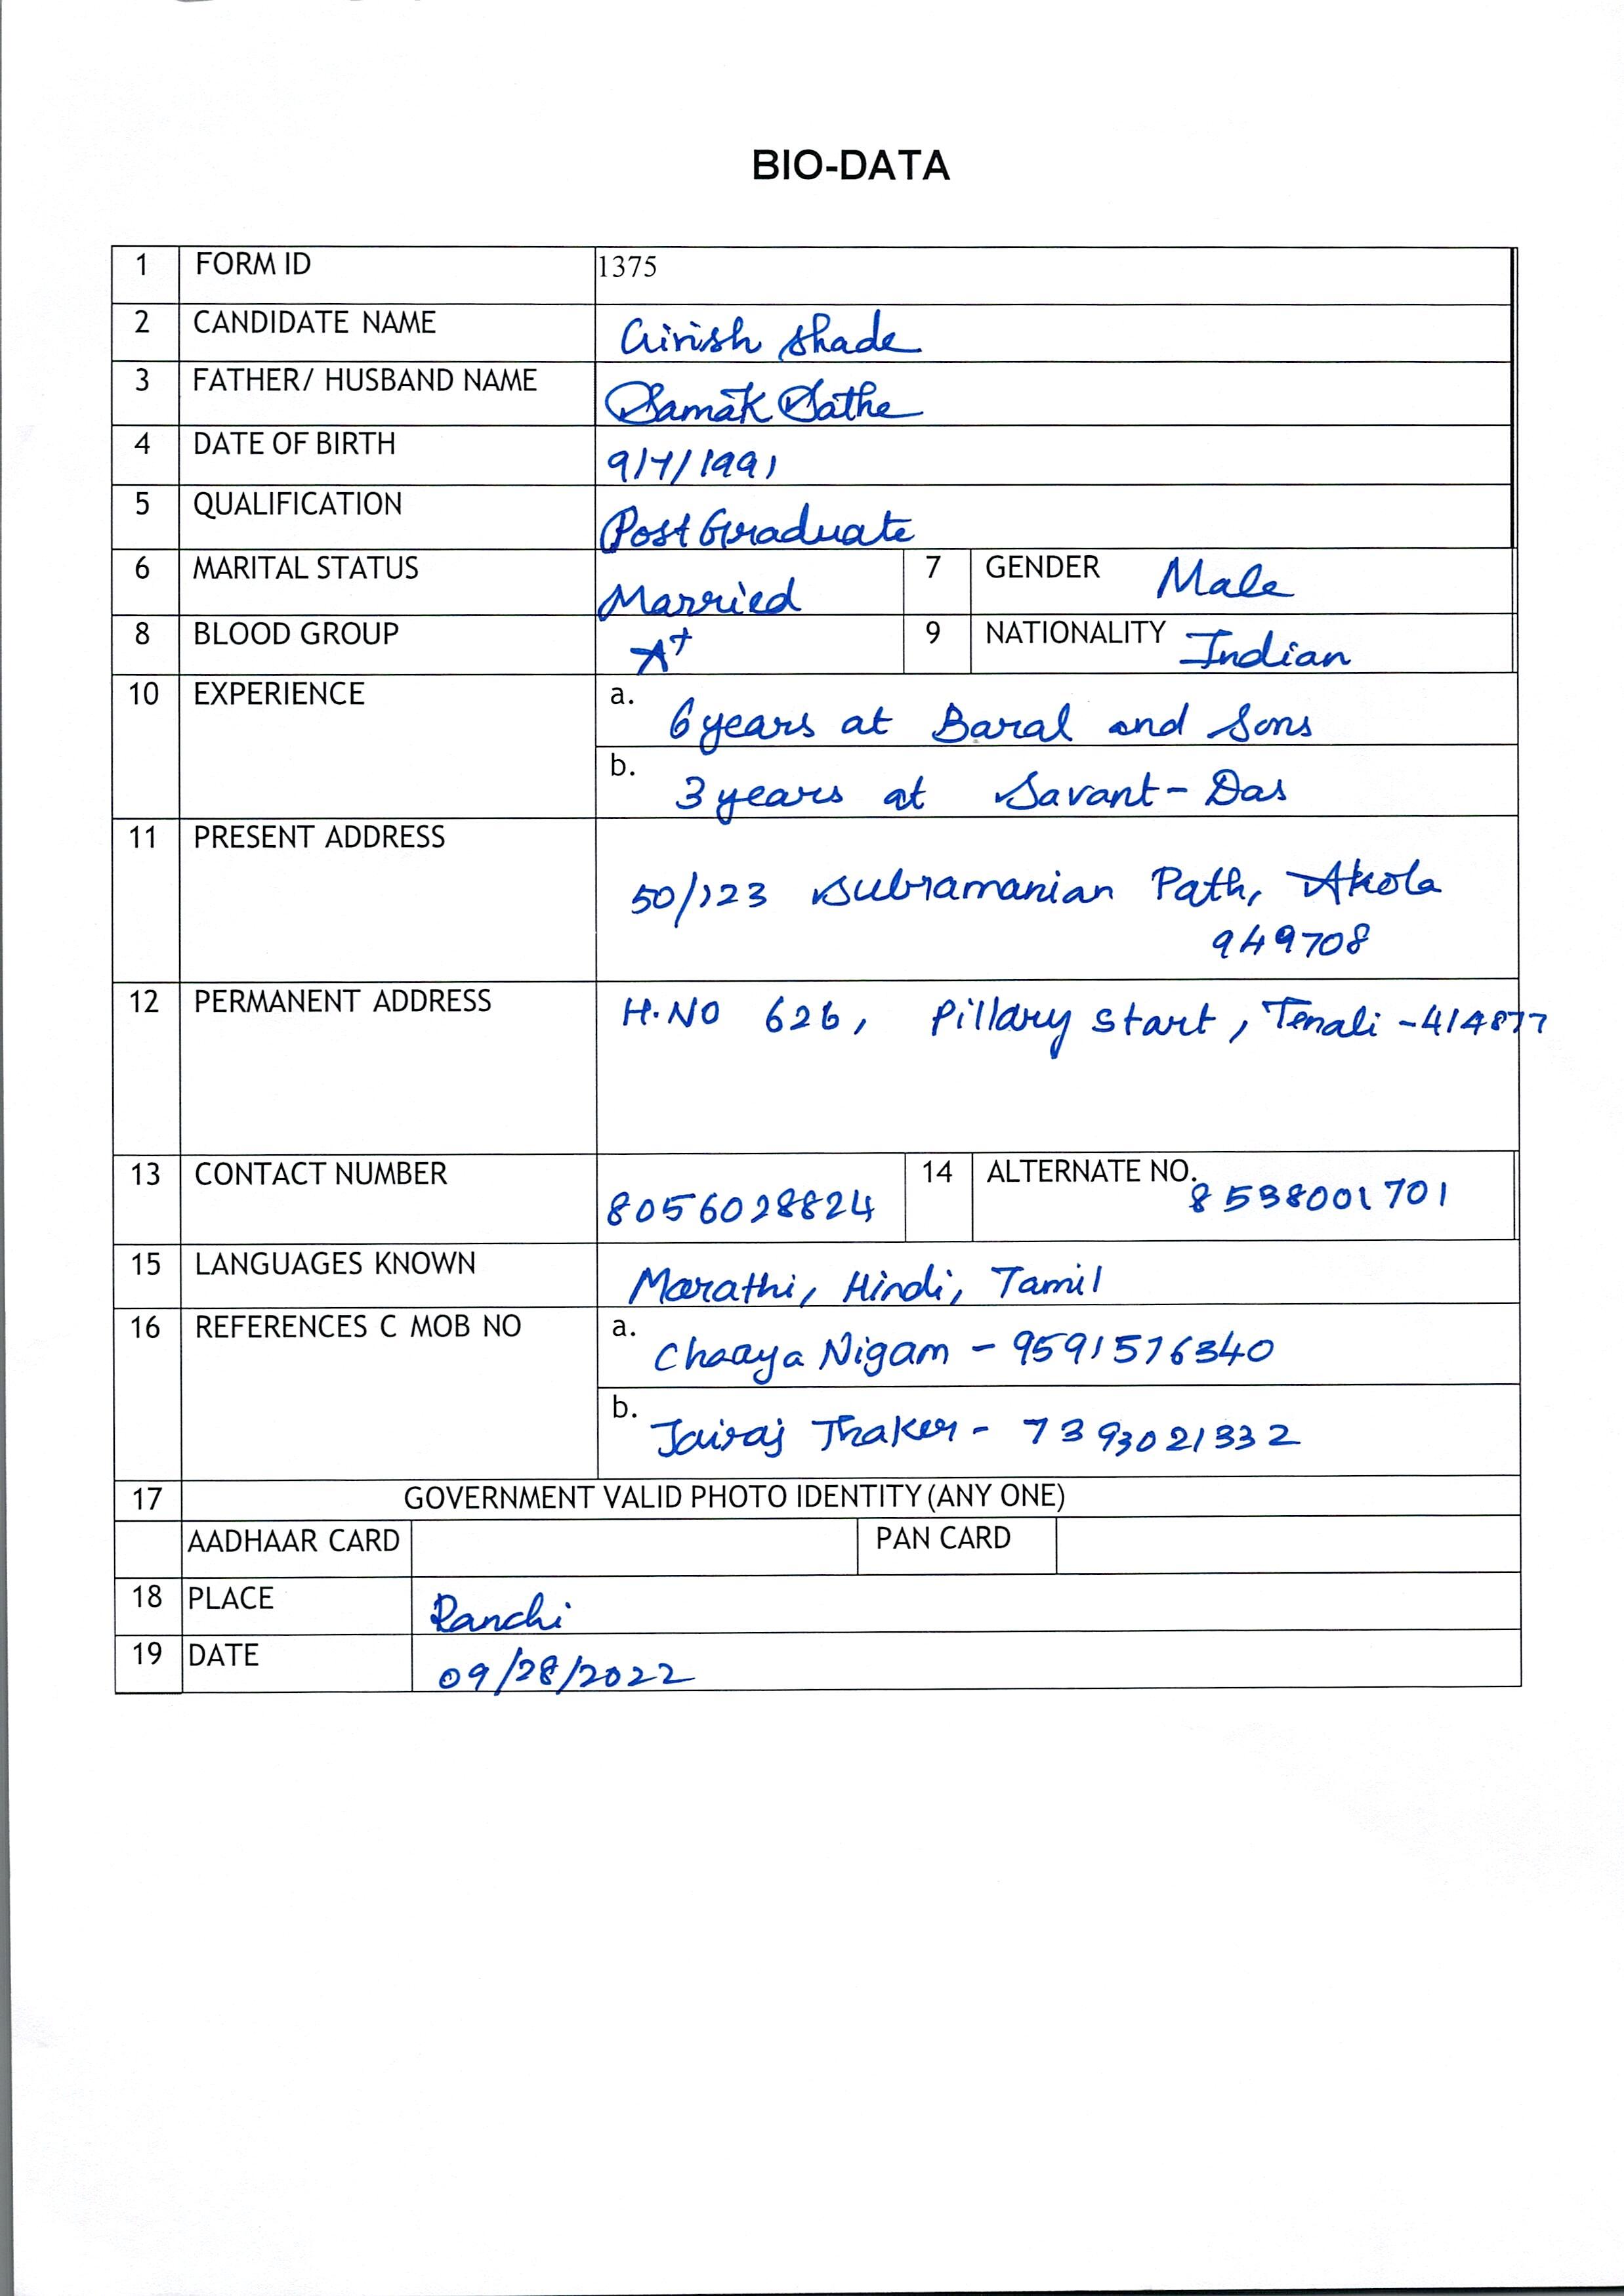 BIO-DATA
1 FORM ID 1375
2 CANDIDATE NAME Girish Shade
3 FATHER/ HUSBAND NAME Samak Sathe
4 DATE OF BIRTH 9/7/1991
5 QUALIFICATION Post Graduate
6 MARITAL STATUS Married 7 GENDER Male
8 BLOOD GROUP A+ 9 NATIONALITY Indian
10 EXPERIENCE a. 6 years at Baral and Sons
b. 3 years at Savant-Das
11 PRESENT ADDRESS
50/123 Subramanian Path, Akola
949708
12 PERMANENT ADDRESS H.NO 626, Pillary Start, Tenali -414877
13 CONTACT NUMBER 8056028824 14 ALTERNATE NO. 8538001701
15 LANGUAGES KNOWN Marathi, Hindi, Tamil
16 REFERENCES C MOB NO a. Chaaya Nigam - 9591576340
b. Jairaj Thaker - 7393021332
17 GOVERNMENT VALID PHOTO IDENTITY (ANY ONE)
AADHAAR CARD PAN CARD
18 PLACE Ranchi
19 DATE 09/28/2022